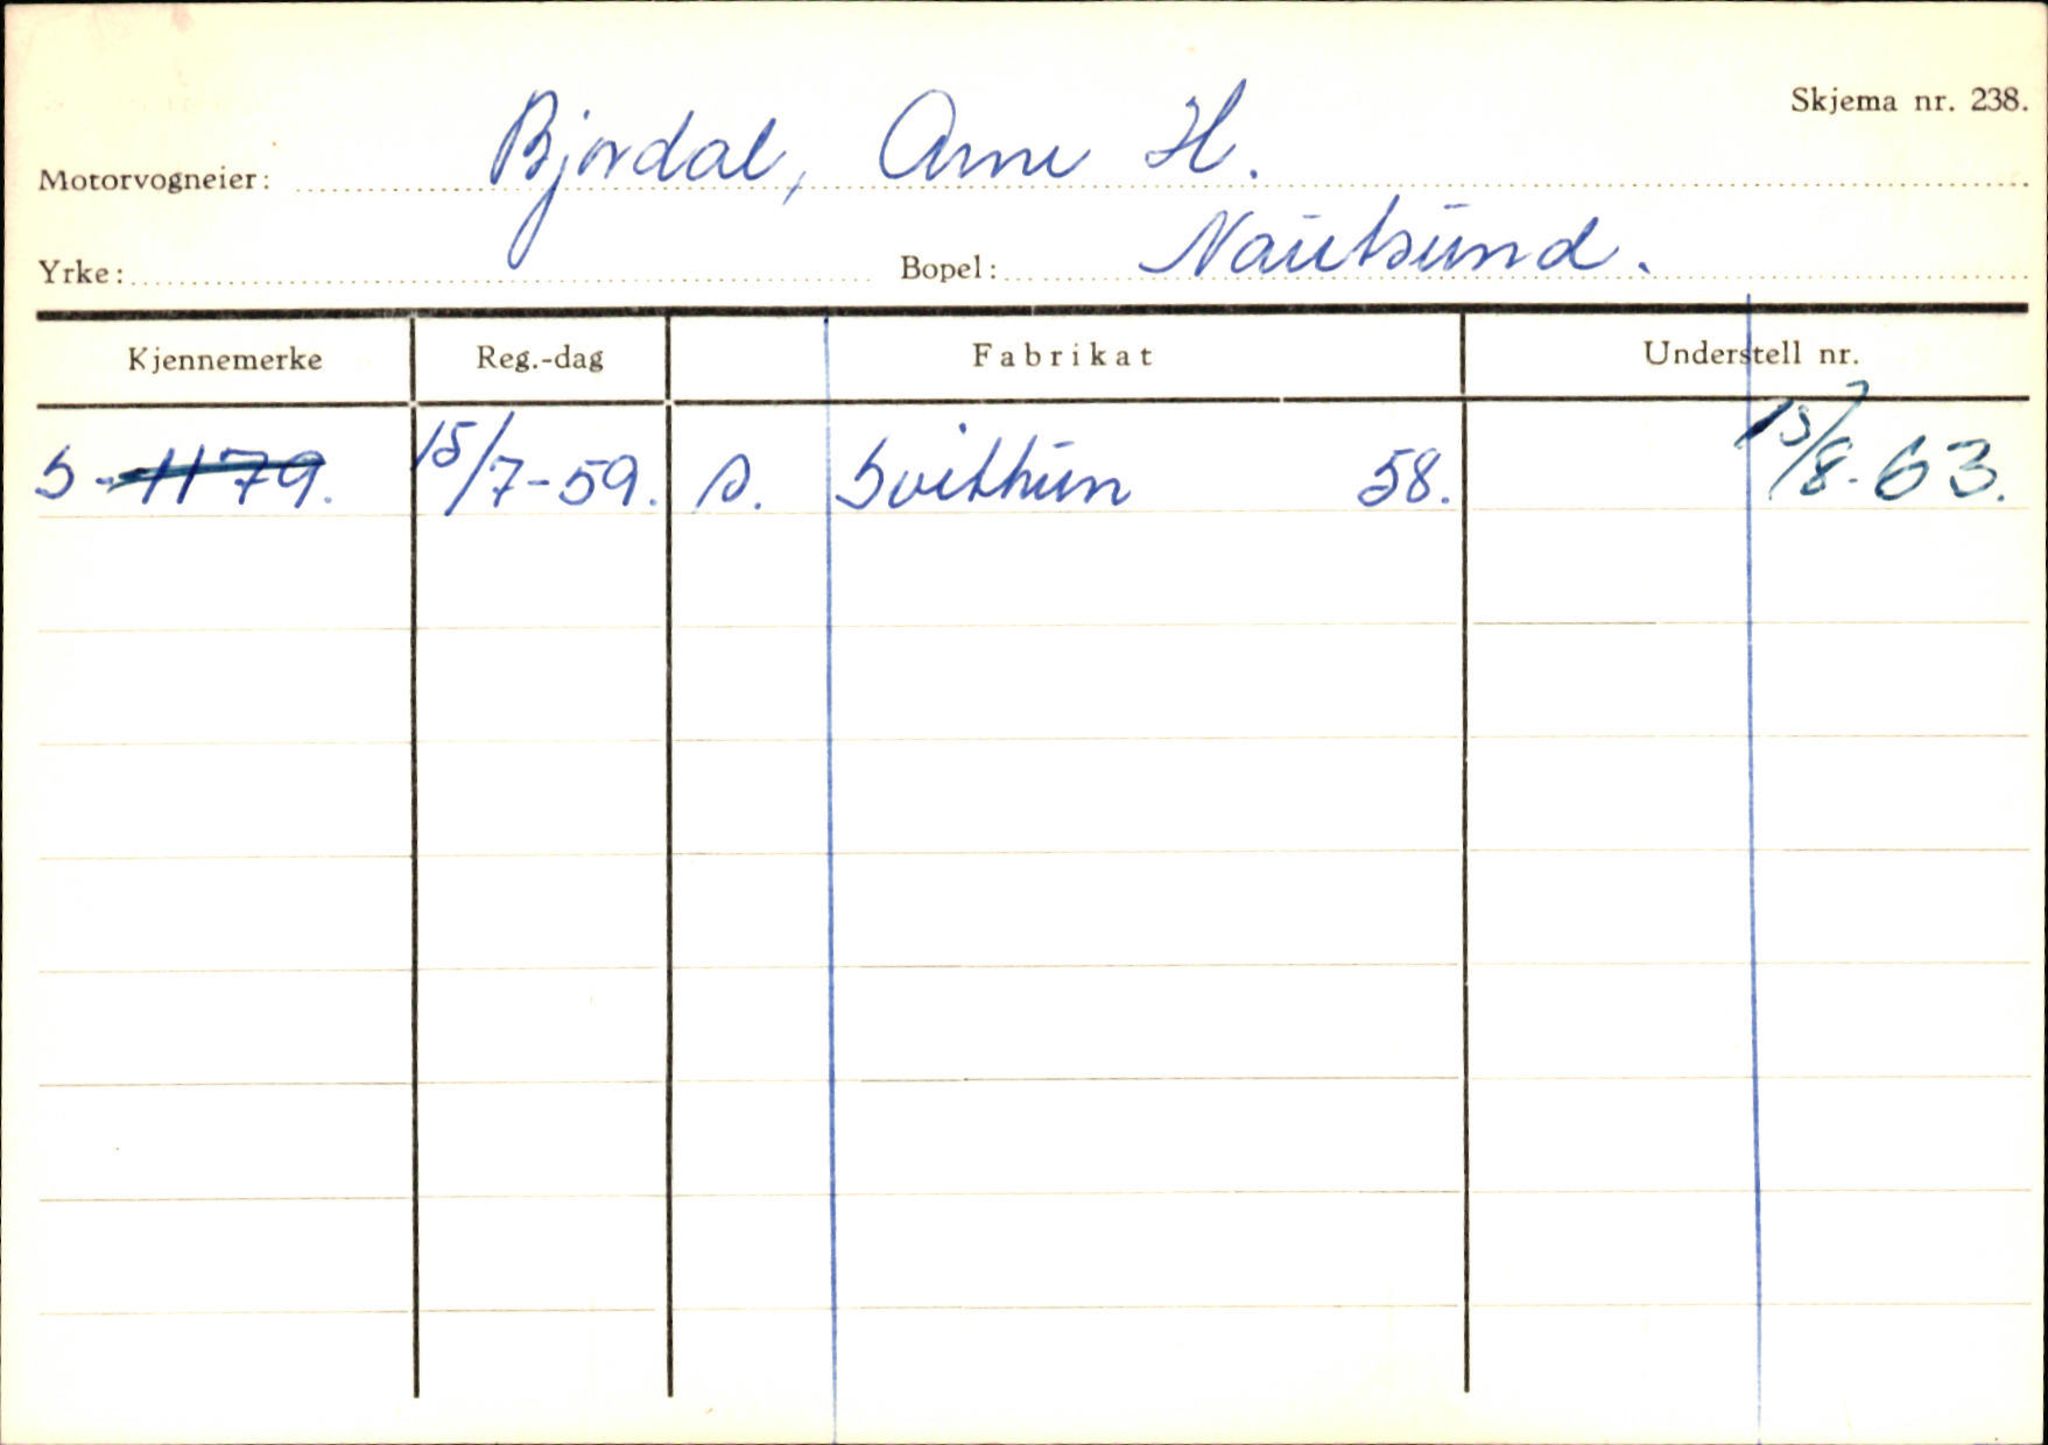 Skjema nr. 238.
Motorvogneier: Bjordal, Arne H.
Yrke: Bopel: Nautsund.
Kjennemerke Reg.-dag Fabrikat Understell nr.
S-1179. 15/7-59. s. Svithun 58. 15/8-63.